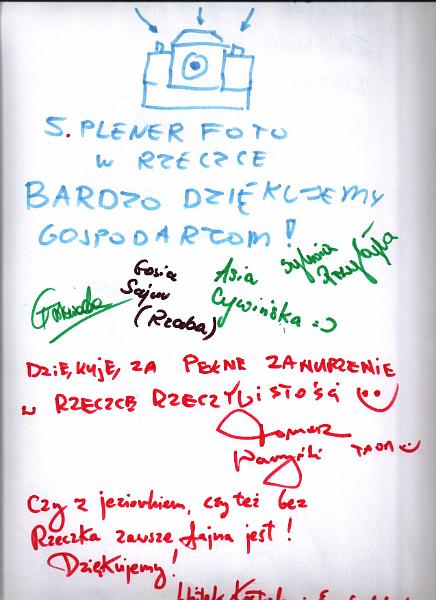 5. PLENER FOTO
W RZECZCE
BARDZO DZIĘKUJEMY
GOSPODARZOM!
Gosia
Sajur
(Rzaba)
Asia
Cywińska :)
Sylwia
DZIĘKUJĘ, ZA PEŁNE ZANURZENIE
W RZECZCĘ RZECZYWISTOŚCI
Tomasz
Czy z jeziorkiem, czy też bez
Rzeczka zawsze fajna jest!
Dziękujemy!